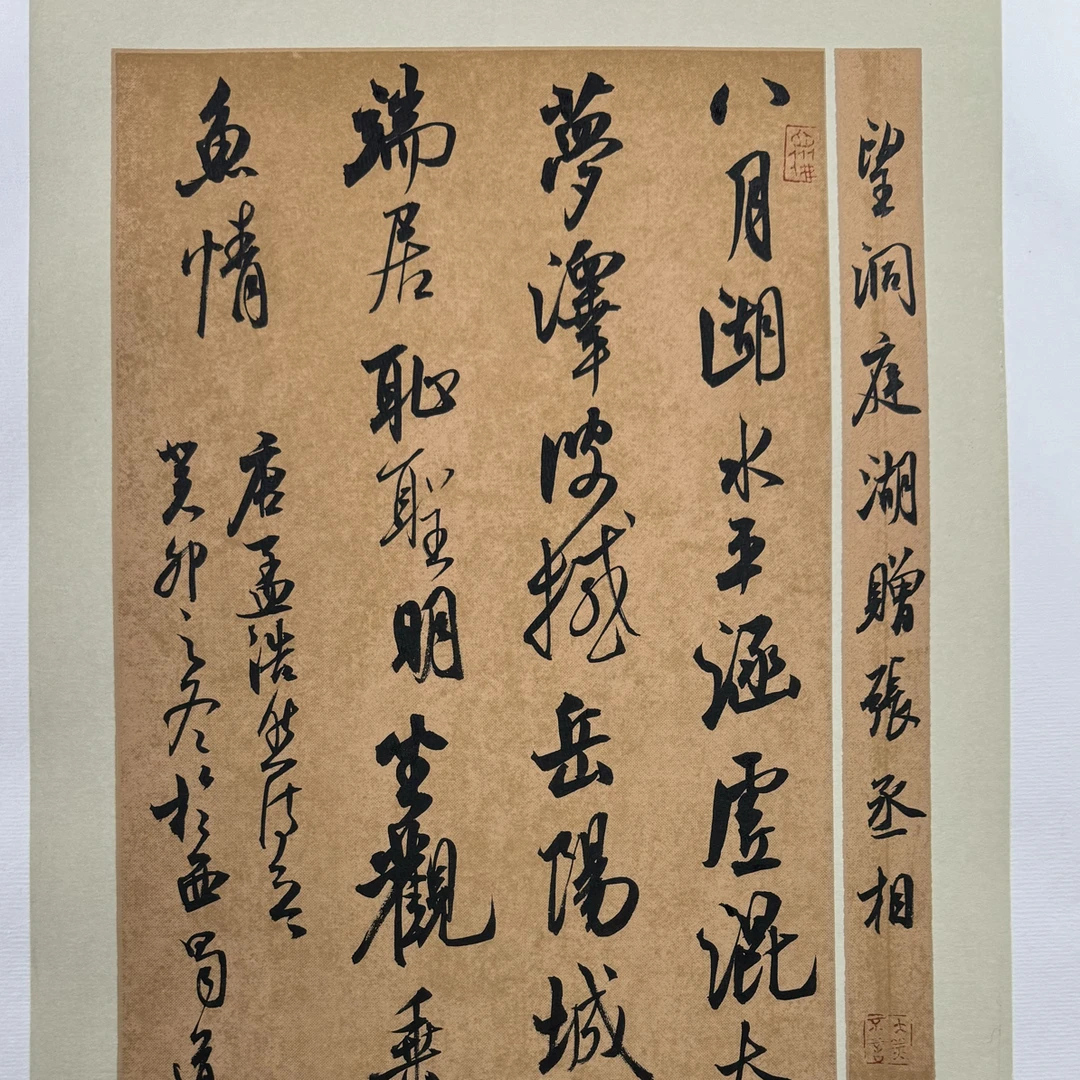 望洞庭湖贈張丞相
八月湖水平涵虛混太
夢澤波撼岳陽城
端居恥聖明坐觀垂
魚情
唐孟浩然詩
癸卯之冬於西蜀